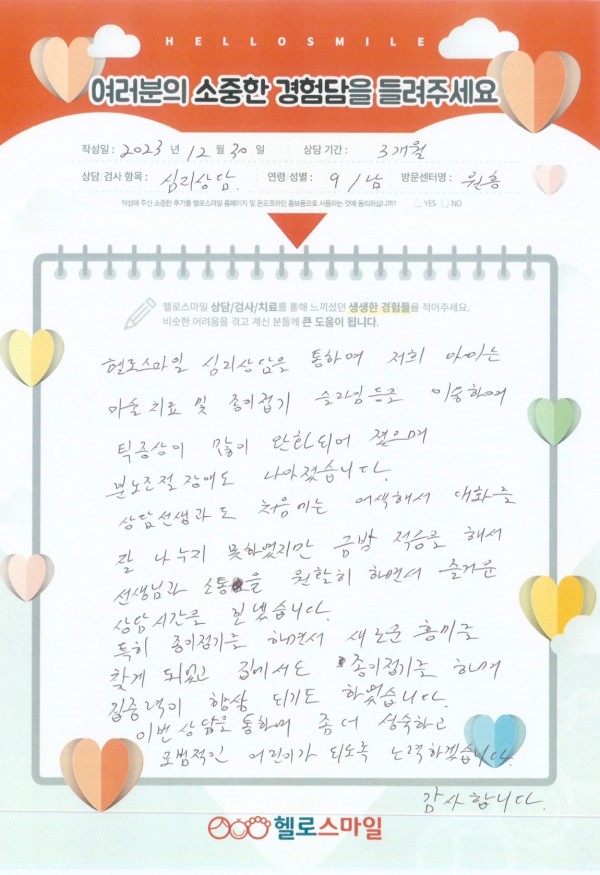 HELLOSMILE
여러분의 소중한 경험담을 들려주세요
작성일 : 2023 년 12 월 30 일 상담 기간 : 3개월
상담 검사 항목 : 심리상담. 연령 성별 : 9 / 남 방문센터명 : 원흥
작성해 주신 소중한 후기를 헬로스마일 홈페이지 및 온오프라인 홍보용으로 사용하는 것에 동의하십니까? YES NO
헬로스마일 상담/검사/치료를 통해 느끼셨던 생생한 경험들을 적어주세요.
비슷한 어려움을 겪고 계신 분들께 큰 도움이 됩니다.
헬로스마일 심리상담을 통하여 저희 아이는
미술치료 및 종이접기 슬라임등로 이용하여
틱증상이 많이 완화되어 졌으며
분노조절 장애도 나아졌습니다.
상담선생과도 처음에는 어색해서 대화를
잘 나누지 못하였지만 금방 적응을 해서
선생님과 소통을 원할히 하면서 즐거운
상담시간을 보냈습니다.
특히 종이접기를 하면서 새로운 흥미를
찾게 되었고 집에서도 종이접기를 하며
집중력이 향상 되기도 하였습니다.
이번 상담을 통하여 좀 더 성숙하고
모범적인 어린이가 되도록 노력하겠습니다.
감사합니다.
헬로스마일